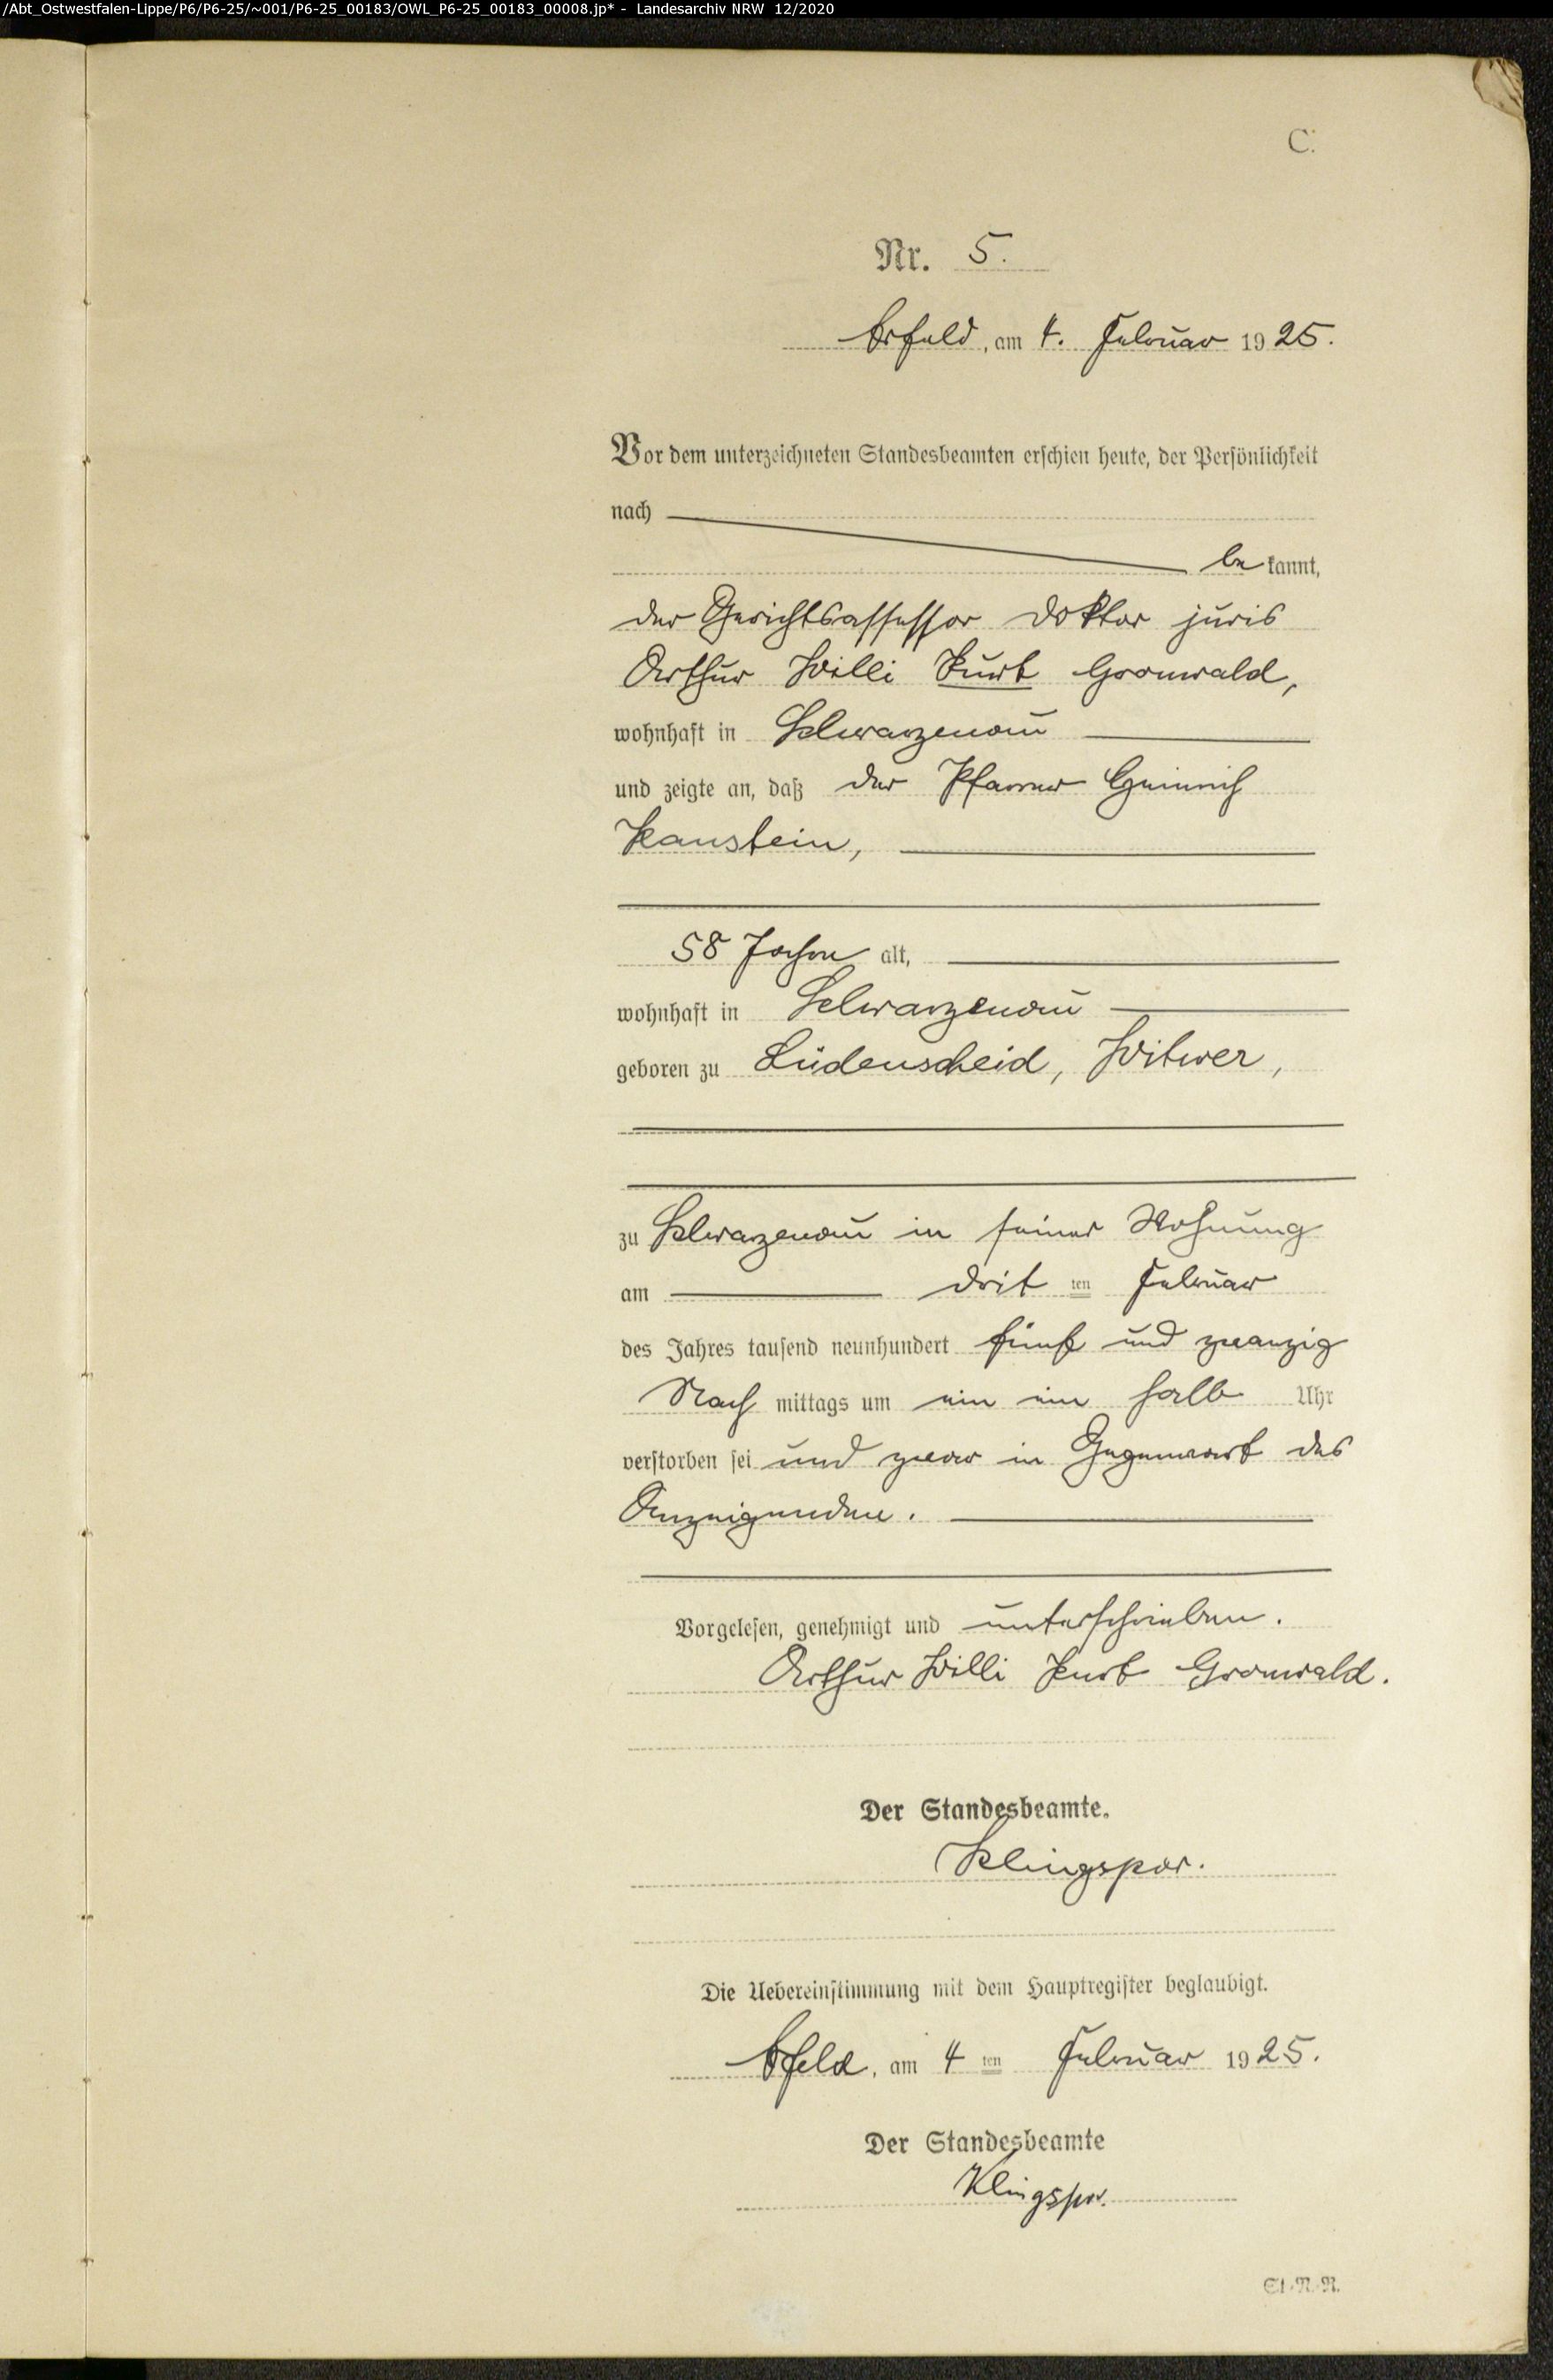 /Abt_Ostwestfalen-Lippe/P6/P6-25/~001/P6-25_00183/OWL_P6-25_00183_00008.jp* - Landesarchiv NRW 12/2020
C.
Nr. 5.
Arfeld, am 4. Februar 1925.
Vor dem unterzeichneten Standesbeamten erschien heute, der Persönlichkeit
nach
be kannt,
der Gerichtsassessor Doktor juris
Arthur Willi Kurt Gronwald,
wohnhaft in Schwarzenau
und zeigte an, daß der Pfarrer Heinrich
Kaustein,
58 Jahre alt,
wohnhaft in Schwarzenau
geboren zu Lüdenscheid, Witwer,
zu Schwarzenau in seiner Wohnung
am drit ten Februar
des Jahres tausend neunhundert fünf und zwanzig
Nach mittags um ein ein halb Uhr
verstorben sei und zwar in Gegenwart des
Anzeigenden.
Vorgelesen, genehmigt und unterschrieben.
Arthur Willi Kurt Gronwald.
Der Standesbeamte.
Klingspor.
Die Uebereinstimmung mit dem Hauptregister beglaubigt.
Arfeld, am 4 ten Februar 1925.
Der Standesbeamte
Klingspor.
St.-N.-R.